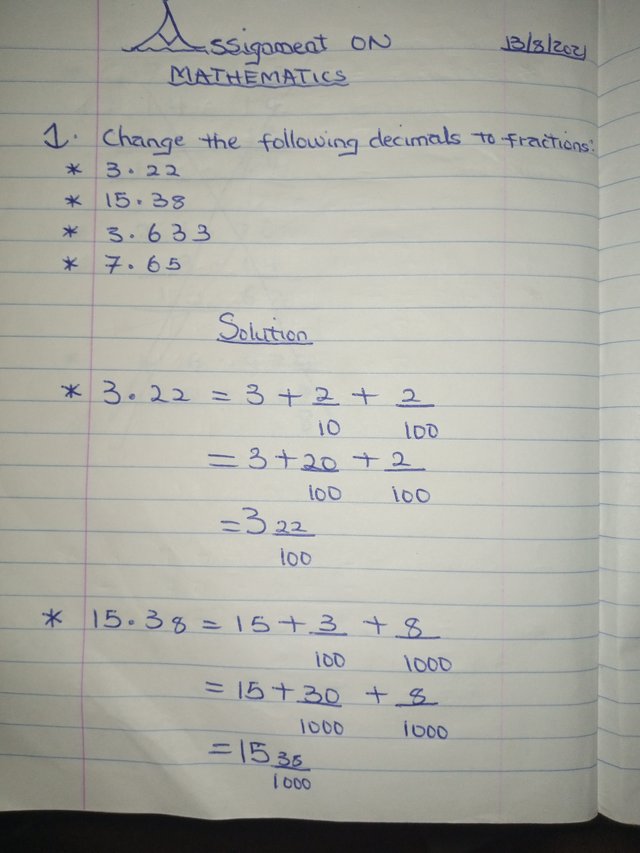 Assignment ON 13/8/2021
MATHEMATICS
1. Change the following decimals to fractions:
* 3.22
* 15.38
* 3.633
* 7.65
Solution
* 3.22 = 3 + 2/10 + 2/100
= 3 + 20/100 + 2/100
= 3 22/100
* 15.38 = 15 + 3/100 + 8/1000
= 15 + 30/1000 + 8/1000
= 15 38/1000